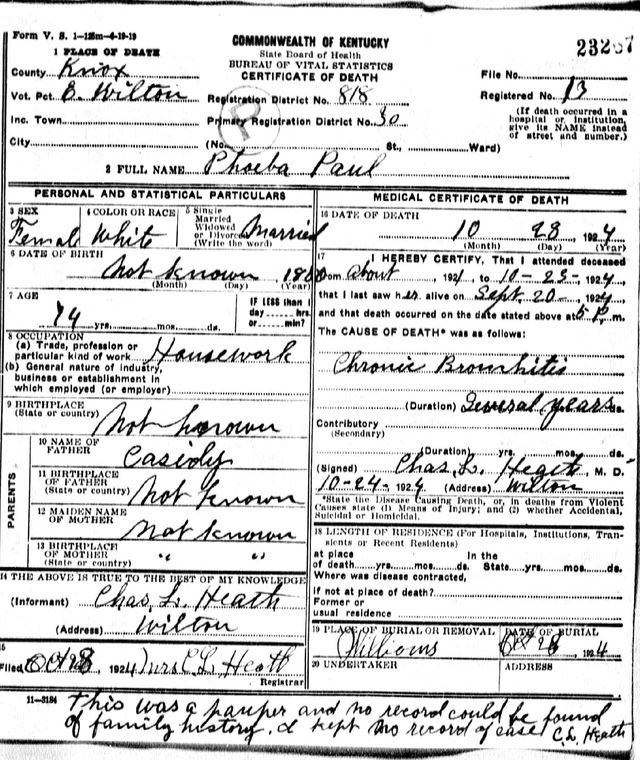 Form V. S. 1—125m—6-19-19
COMMONWEALTH OF KENTUCKY
State Board of Health
BUREAU OF VITAL STATISTICS
CERTIFICATE OF DEATH
1 PLACE OF DEATH
County Knox
Vot. Pct. E. Wilton
Inc. Town
City
Registration District No. 818
Primary Registration District No. 30
(No. St., Ward)
File No.
Registered No. 13
(If death occurred in a
hospital or institution,
give its NAME instead
of street and number.)
2 FULL NAME Phoeba Paul
PERSONAL AND STATISTICAL PARTICULARS
3 SEX
Female
4 COLOR OR RACE
White
5 Single
Married
Widowed
or Divorced
(Write the word)
Married
6 DATE OF BIRTH
Not known
(Month) (Day) (Year)
7 AGE
74 yrs. mos. ds.
IF LESS than 1
day hrs.
or min?
8 OCCUPATION
(a) Trade, profession or
particular kind of work Housework
(b) General nature of industry,
business or establishment in
which employed (or employer)
9 BIRTHPLACE
(State or country) Not known
PARENTS
10 NAME OF
FATHER Casidy
11 BIRTHPLACE
OF FATHER
(State or country) Not known
12 MAIDEN NAME
OF MOTHER Not known
13 BIRTHPLACE
OF MOTHER " "
(State or country)
14 THE ABOVE IS TRUE TO THE BEST OF MY KNOWLEDGE
(Informant) Chas. L. Heath
(Address) Wilton
15
Filed Oct 28 1924 Mrs C L Heath
Registrar
MEDICAL CERTIFICATE OF DEATH
16 DATE OF DEATH
10 23, 1924
(Month) (Day) (Year)
17 I HEREBY CERTIFY, That I attended deceased
from about 1921, to 10-23-, 1924,
that I last saw her alive on Sept. 20-, 1924
and that death occurred on the date stated above at 5 P. m.
The CAUSE OF DEATH* was as follows:
Chronic Bronchitis
(Duration) Several years ds.
Contributory
(Secondary)
(Duration) yrs. mos. ds.
(Signed) Chas. L. Heath, M. D.
10-24-1924 (Address) Wilton
*State the Disease Causing Death, or, in deaths from Violent
Causes state (1) Means of Injury; and (2) whether Accidental,
Suicidal or Homicidal.
18 LENGTH OF RESIDENCE (For Hospitals, Institutions, Tran-
sients or Recent Residents)
at place In the
of death yrs. mos. ds. State yrs. mos. ds.
Where was disease contracted,
if not at place of death?
Former or
usual residence
19 PLACE OF BURIAL OR REMOVAL
Williams
DATE OF BURIAL
1924
20 UNDERTAKER
ADDRESS
11—3184
This was a pauper and no record could be found
of family history. I kept no record of case C. L. Heath